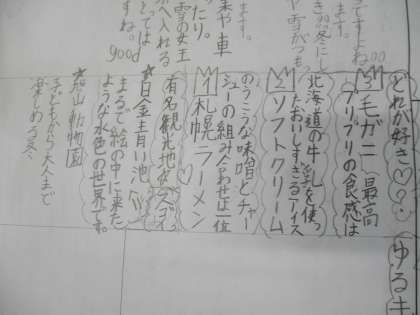 ですよね
ます。
き🈚冬にし
や雪がつも
good
すね。
とっては
へ入れる
雪の女王
たり。
来や車
ます。
どれが好き♡?
3 毛ガニ 最高
プリプリの食感は
北海道の牛乳を使っ
たおいしすぎるアイス
2 ソフトクリーム
のうこうな味噌とチャー
シューの組み合わせは一位
1 札幌ラーメン♡
有名観光地がスゴイ
☆白金青い池
まるで絵の中に来た
ような水色の世界です。
☆旭山動物園
子どもから大人まで
楽しめる
ゆるキ